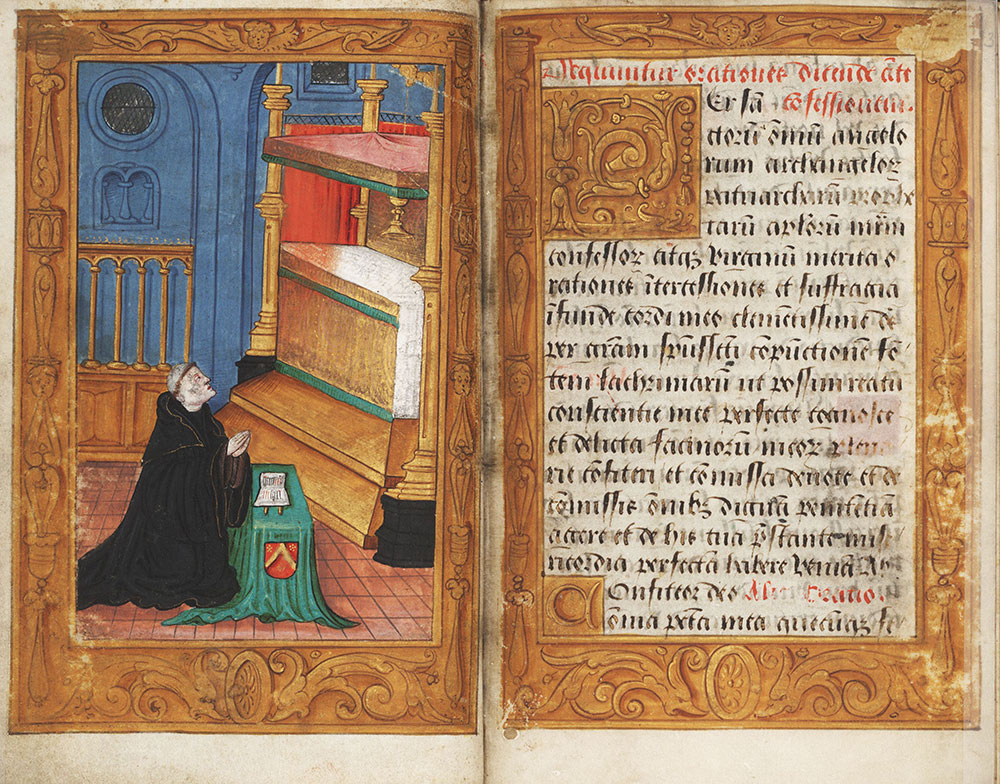 Sequuntur orationes dicende ãte
Er sãc confessionem
ctorũ õmiũ angelo
rum archangeloꝝ
patriarcharũ prophe
tarũ aplorũ mr̃m
confessoꝝ atqꝫ virginũ merita o
rationes ĩtercessiones et suffragia
ĩfunde cordi meo clemẽtissime de
per gram̃ spũssctĩ cõpũctionem fõ
tem lachrimarũ ut possim reatũ
conscientie mee perfecte cognosce
et delicta facinorũ meoꝝ plena
rie cõfiteri et cõmissa deuote et de
cõmissis õnibꝫ dignã penitẽtiã
agere et de his tua p̃stante mise
ricordia perfectã habere veniã A
Onfiteor deo Alia Oratio
õnia petã mea quecũqꝫ fe